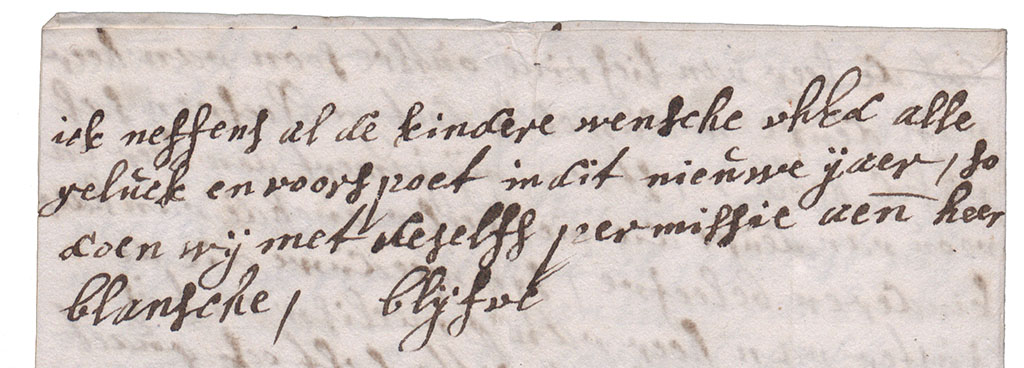 ick neffens al de kindere wensche vhEd alle
geluck en voorspoet in dit nieuwe yaer, so
doen wij met deselfs permissie aen heer
blansche, blijfve